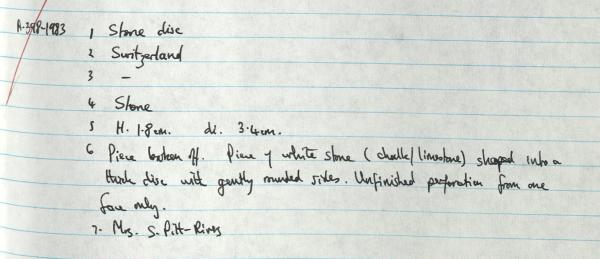 A.398-1983 1 Stone disc
2 Switzerland
3 –
4 Stone
5 H. 1.8cm. di. 3.4cm.
6 Piece broken off. Piece of white stone (chalk/limestone) shaped into a
thick disc with gently rounded sides. Unfinished perforation from one
face only.
7. Mrs. S. Pitt-Rivers